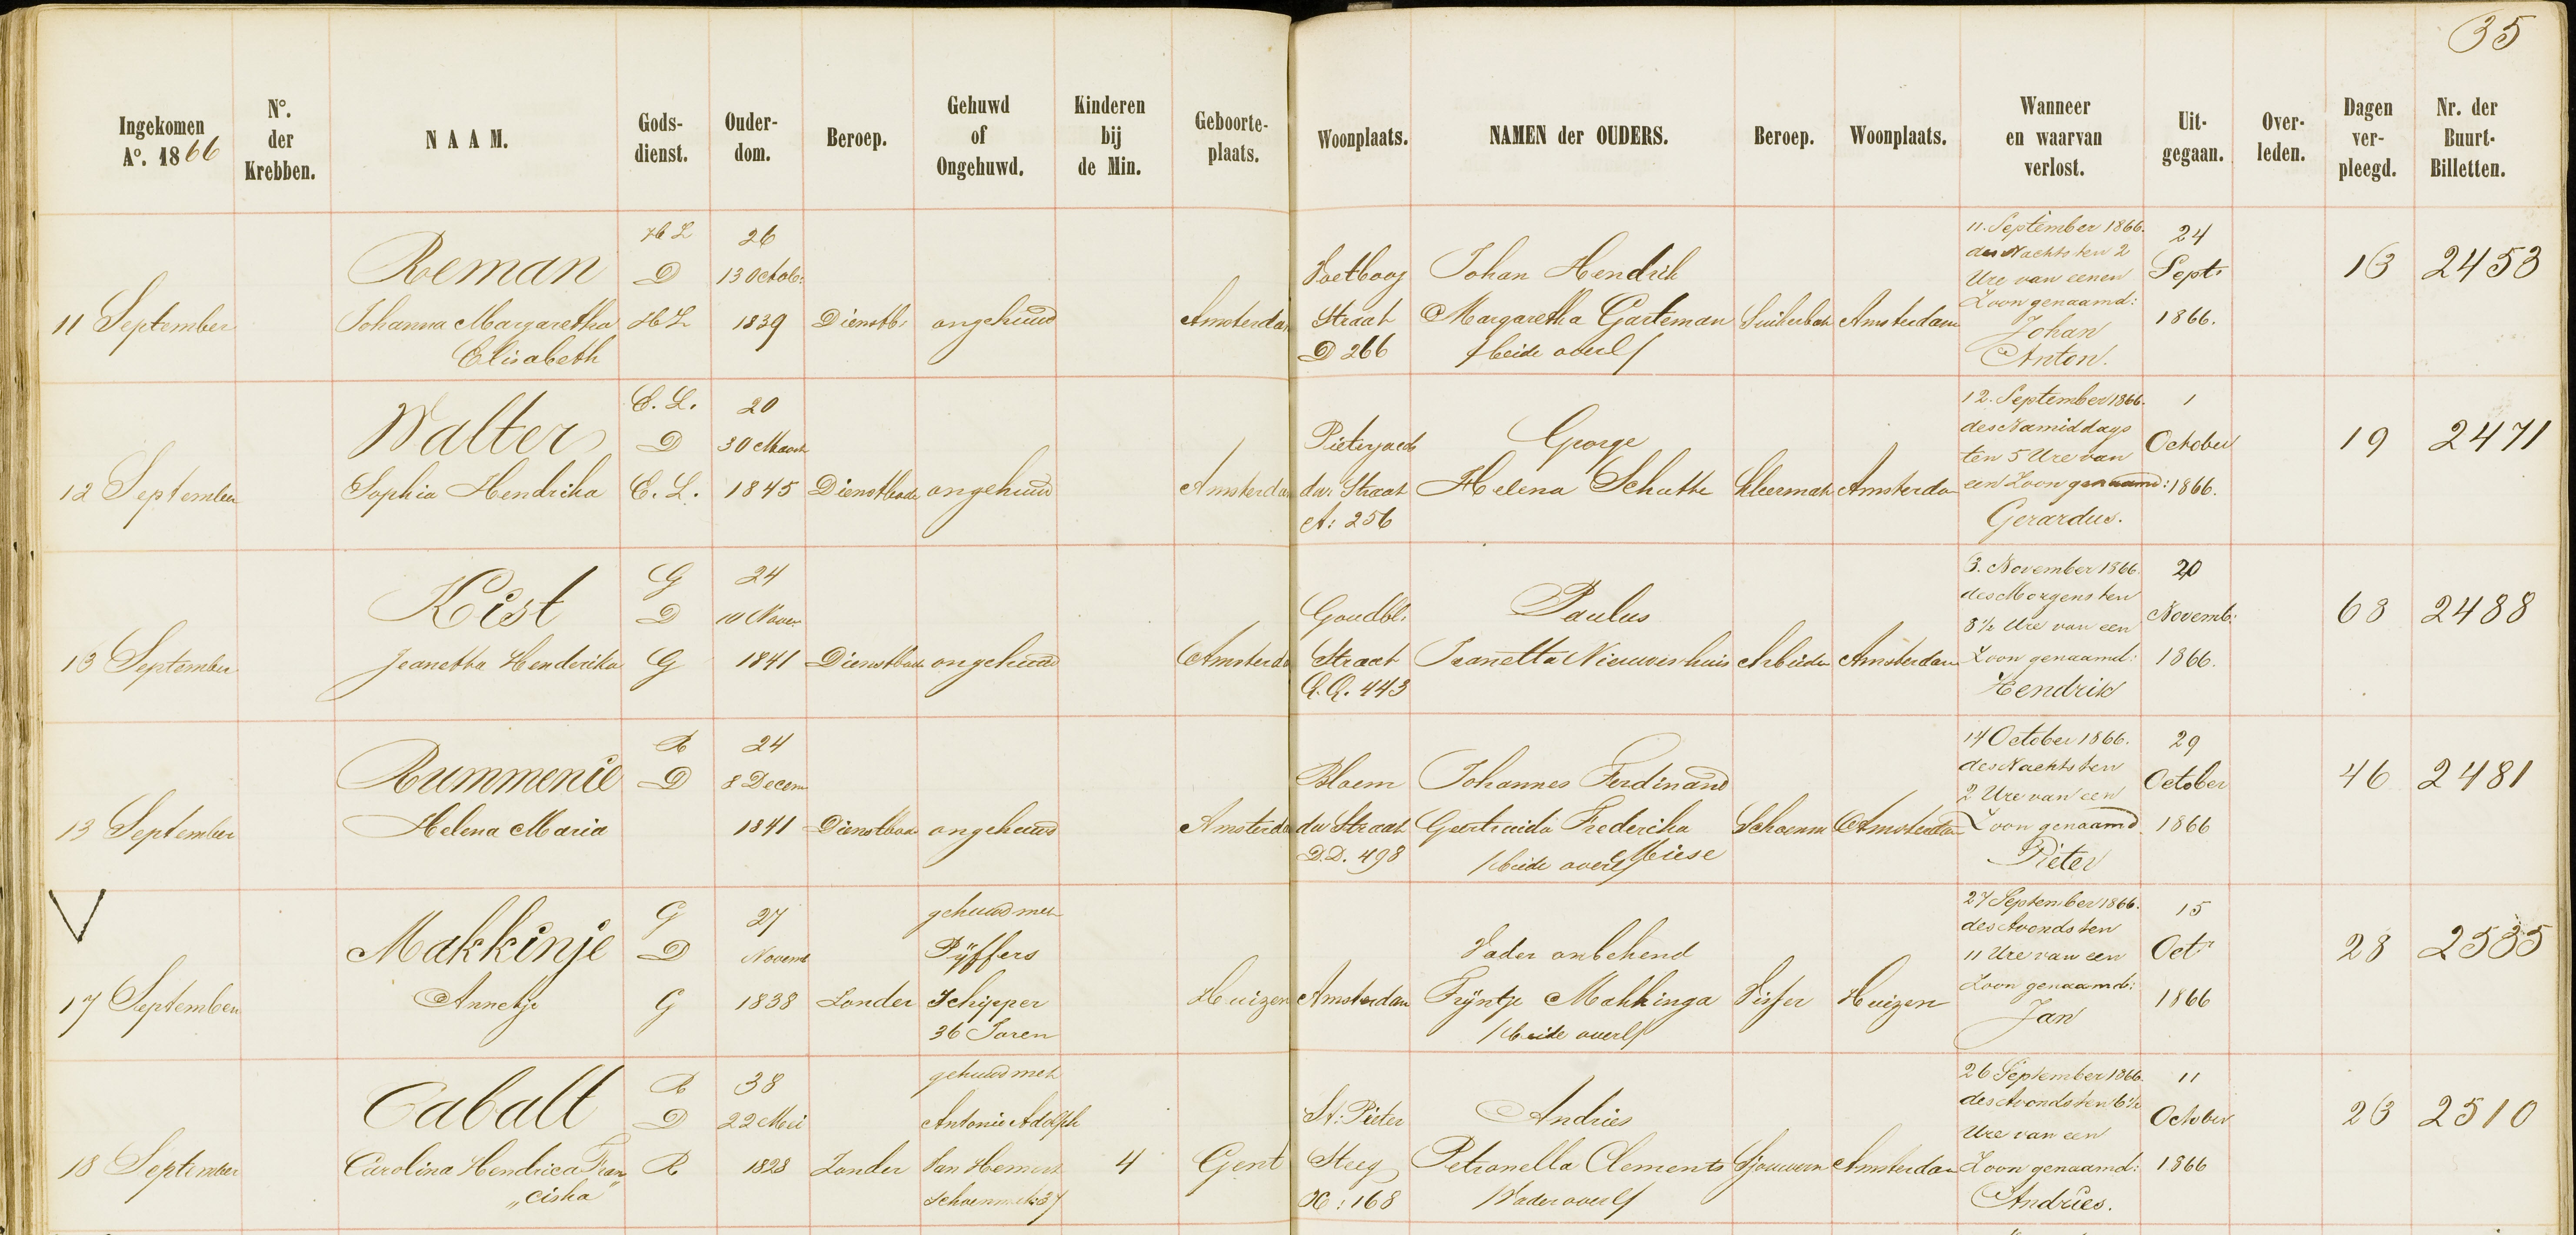 35
Ingekomen Aº. 1866
Nº. der Krebben.
NAAM.
Gods-dienst.
Ouder-dom.
Beroep.
Gehuwd of Ongehuwd.
Kinderen bij de Min.
Geboorte-plaats.
Woonplaats.
NAMEN der OUDERS.
Beroep.
Woonplaats.
Wanneer en waarvan verlost.
Uit-gegaan.
Over-leden.
Dagen ver-pleegd.
Nr. der Buurt-Billetten.
11 September
Reman
Johanna Margaretha
Elisabeth
HL
D
HL
26
13 Octob:
1839
Dienstb:
ongehuwd
Amsterdam
Voetboog
Straat
D 266
Johan Hendrik
Margaretha Garteman
/beide overl/
Suikerbak
Amsterdam
11. September 1866.
des Nachts ten 2
Ure van eenen
Zoon genaamd:
Johan
Anton.
24
Sept.
1866.
13
2453
12 September
Walter
Sophia Hendrika
E. L.
D
E. L.
20
30 Maart
1845
Dienstbode
ongehuwd
Amsterdam
Pieterjacob
dwr. Straat
A: 256
George
Helena Schutte
Kleermak
Amsterdam
12. September 1866.
des Namiddags
ten 5 Ure van
een Zoon genaamd:
Gerardus.
1
October
1866.
19
2471
13 September
Kist
Jeanetta Henderika
G
D
G
24
10 Novem
1841
Dienstbode
ongehuwd
Amsterda
Goudbl:
Straat
G.G. 443
Paulus
Jeanetta Nieuwenhuis
Arbeider
Amsterdam
3. November 1866.
des Morgens ten
8½ Ure van een
Zoon genaamd:
Hendrik
20
Novemb:
1866.
68
2488
13 September
Rummenie
Helena Maria
R
D
24
8 Decem
1841
Dienstbode
ongehuwd
Amsterda
Bloem
dw Straat
D.D. 498
Johannes Ferdinand
Geertruida Frederika
Miese
/beide overl/
Schoenm
Amsterdam
14 October 1866.
des Nachts ten
2 Ure van een
Zoon genaamd
Pieter
29
October
1866
46
2481
V
17 September
Makkinje
Annetje
G
D
G
27
Novemb
1838
Zonder
gehuwd met
Pÿffers
Schipper
36 Jaren
Huizen
Amsterdam
Vader onbekend
Trÿntje Makkinga
/beide overl/
Visser
Huizen
27 September 1866.
des Avonds ten
11 Ure van een
Zoon genaamd:
Jan
15
Oct
1866
28
2535
18 September
Cabalt
Carolina Hendrica Fran„
„ciska
R
D
R
38
22 Mei
1828
Zonder
gehuwd met
Antonie Adolph
Van Hemert
Schoenmak: 37
4
Gent
St: Pieter
Steeg
K: 168
Andries
Petronella Clements
/Vader overl/
Sjouwerm
Amsterdam
26 September 1866.
des Avonds ten 6½
Ure van een
Zoon genaamd:
Andries.
11
October
1866
23
2510